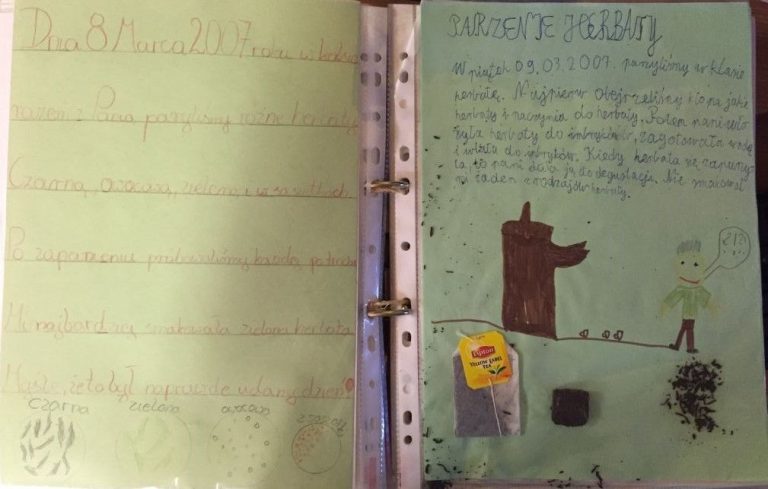 Dnia 8 Marca 2007 roku w klasie
razem z Panią parzyliśmy różne herbaty
Czarną, owocową, zieloną i
Po zaparzeniu próbowaliśmy każdą po
Mi najbardziej smakowała zielona herbata
Myślę, że to był naprawdę udany dzień!
czarna zielona owocowa
PARZENIE HERBATY
W piątek 09.03.2007. parzyliśmy w klasie
herbatę. Najpierw obejrzeliśmy kto ma jakie
herbaty i naczynia do herbaty. Potem pani
herbaty do imbryków, zagotowała wodę
i wlała do imbryków. Kiedy herbata się zaparzy-
ła, to pani dała ją do degustacji. Nie smakował
mi żaden z rodzajów herbaty.
Lipton
YELLOW LABEL
TEA